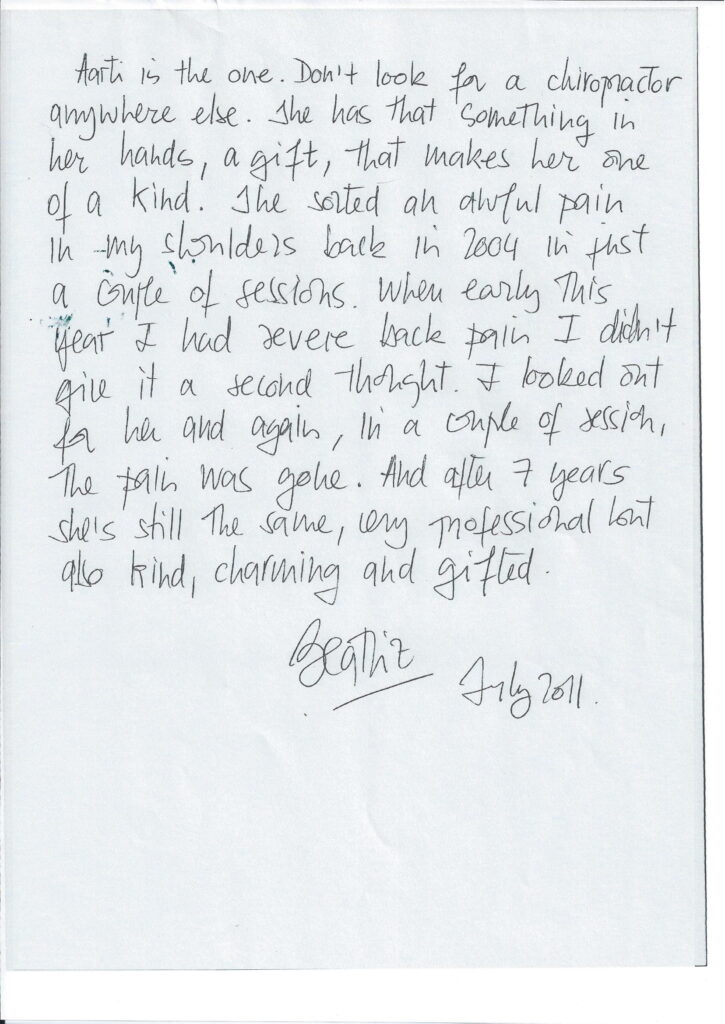 Aarti is the one. Don't look for a chiropractor
anywhere else. She has that something in
her hands, a gift, that makes her one
of a kind. She sorted an awful pain
in my shoulders back in 2004 in just
a couple of sessions. When early this
year I had severe back pain I didn't
give it a second thought. I looked out
for her and again, in a couple of session,
the pain was gone. And after 7 years
she's still the same, very professional but
also kind, charming and gifted.
Beatriz
July 2011.